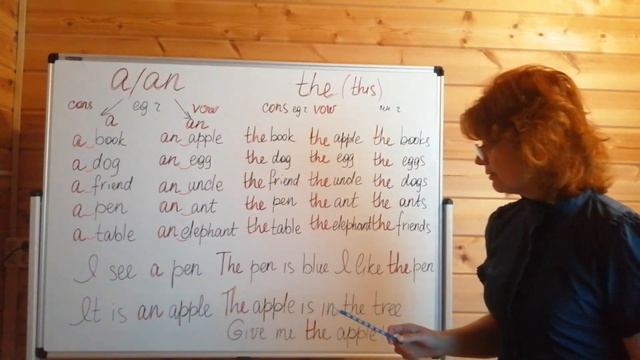 a/an the (this)
cons eg 2 vow cons eg 2 vow
a an
a book an apple the book the apple the books
a dog an egg the dog the egg the eggs
a friend an uncle the friend the uncle the dogs
a pen an ant the pen the ant the ants
a table an elephant the table the elephant the friends
I see a pen The pen is blue I like the pen
It is an apple The apple is in the tree
Give me the apple